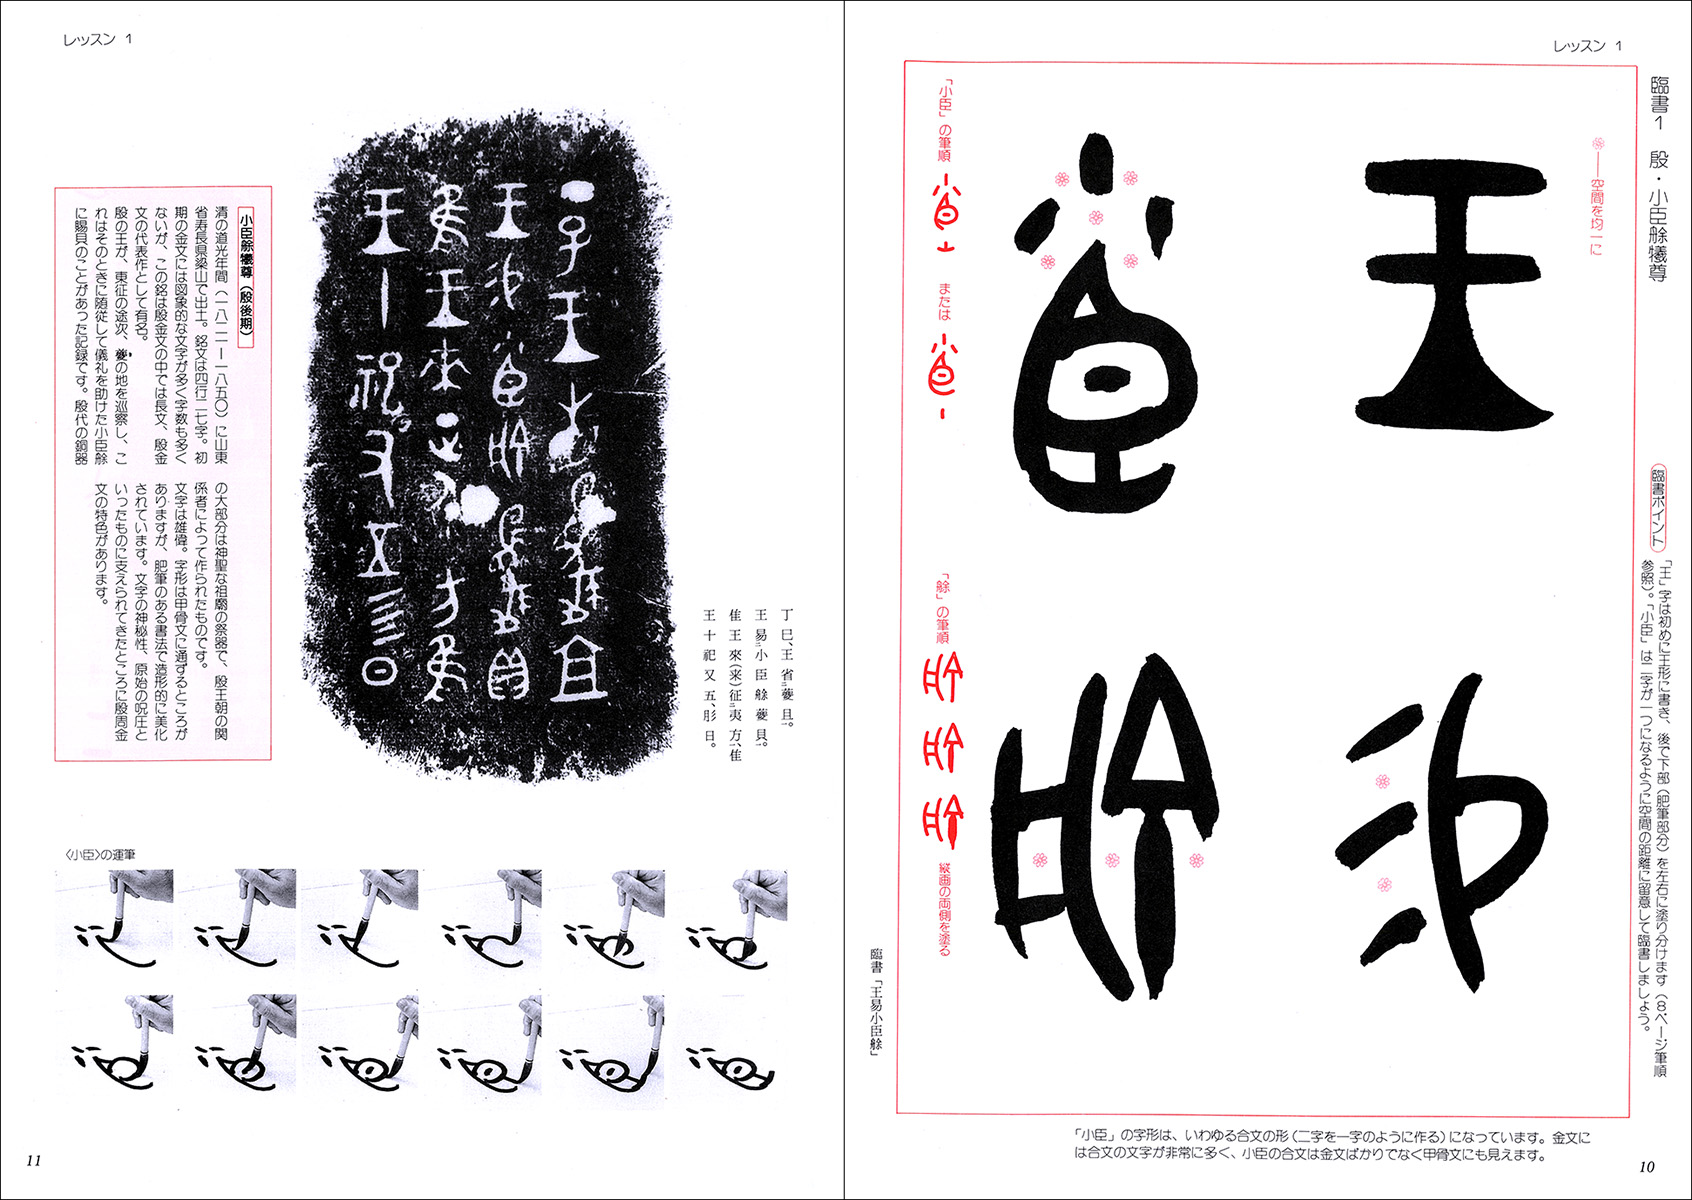 レッスン 1
臨書1 殷・小臣艅犧尊
臨書ポイント
「王」字は初めに王形に書き、後で下部(肥筆部分)を左右に塗り分けます(8ページ筆順
参照)。「小臣」は二字が一つになるように空間の距離に留意して臨書しましょう。
空間を均一に
「小臣」の筆順
または
「艅」の筆順
縦画の両側を塗る
臨書「王易小臣艅」
「小臣」の字形は、いわゆる合文の形(二字を一字のように作る)になっています。金文に
は合文の文字が非常に多く、小臣の合文は金文ばかりでなく甲骨文にも見えます。
10
レッスン 1
丁巳、王省夔且。
王易小臣艅夔貝。
隹王來(来)征夷方、隹
王十祀又五、肜日。
小臣艅犧尊(殷後期)
清の道光年間(一八二一ー一八五〇)に山東
省寿長県梁山で出土。銘文は四行二七字。初
期の金文には図象的な文字が多く字数も多く
ないが、この銘は殷金文の中では長文、殷金
文の代表作として有名。
殷の王が、東征の途次、夔の地を巡察し、こ
れはそのときに随従して儀礼を助けた小臣艅
に賜貝のことがあった記録です。殷代の銅器
の大部分は神聖な祖廟の祭器で、殷王朝の関
係者によって作られたものです。
文字は雄偉。字形は甲骨文に通ずるところが
ありますが、肥筆のある書法で造形的に美化
されています。文字の神秘性、原始の呪圧と
いったものに支えられてきたところに殷周金
文の特色があります。
〈小臣〉の運筆
11